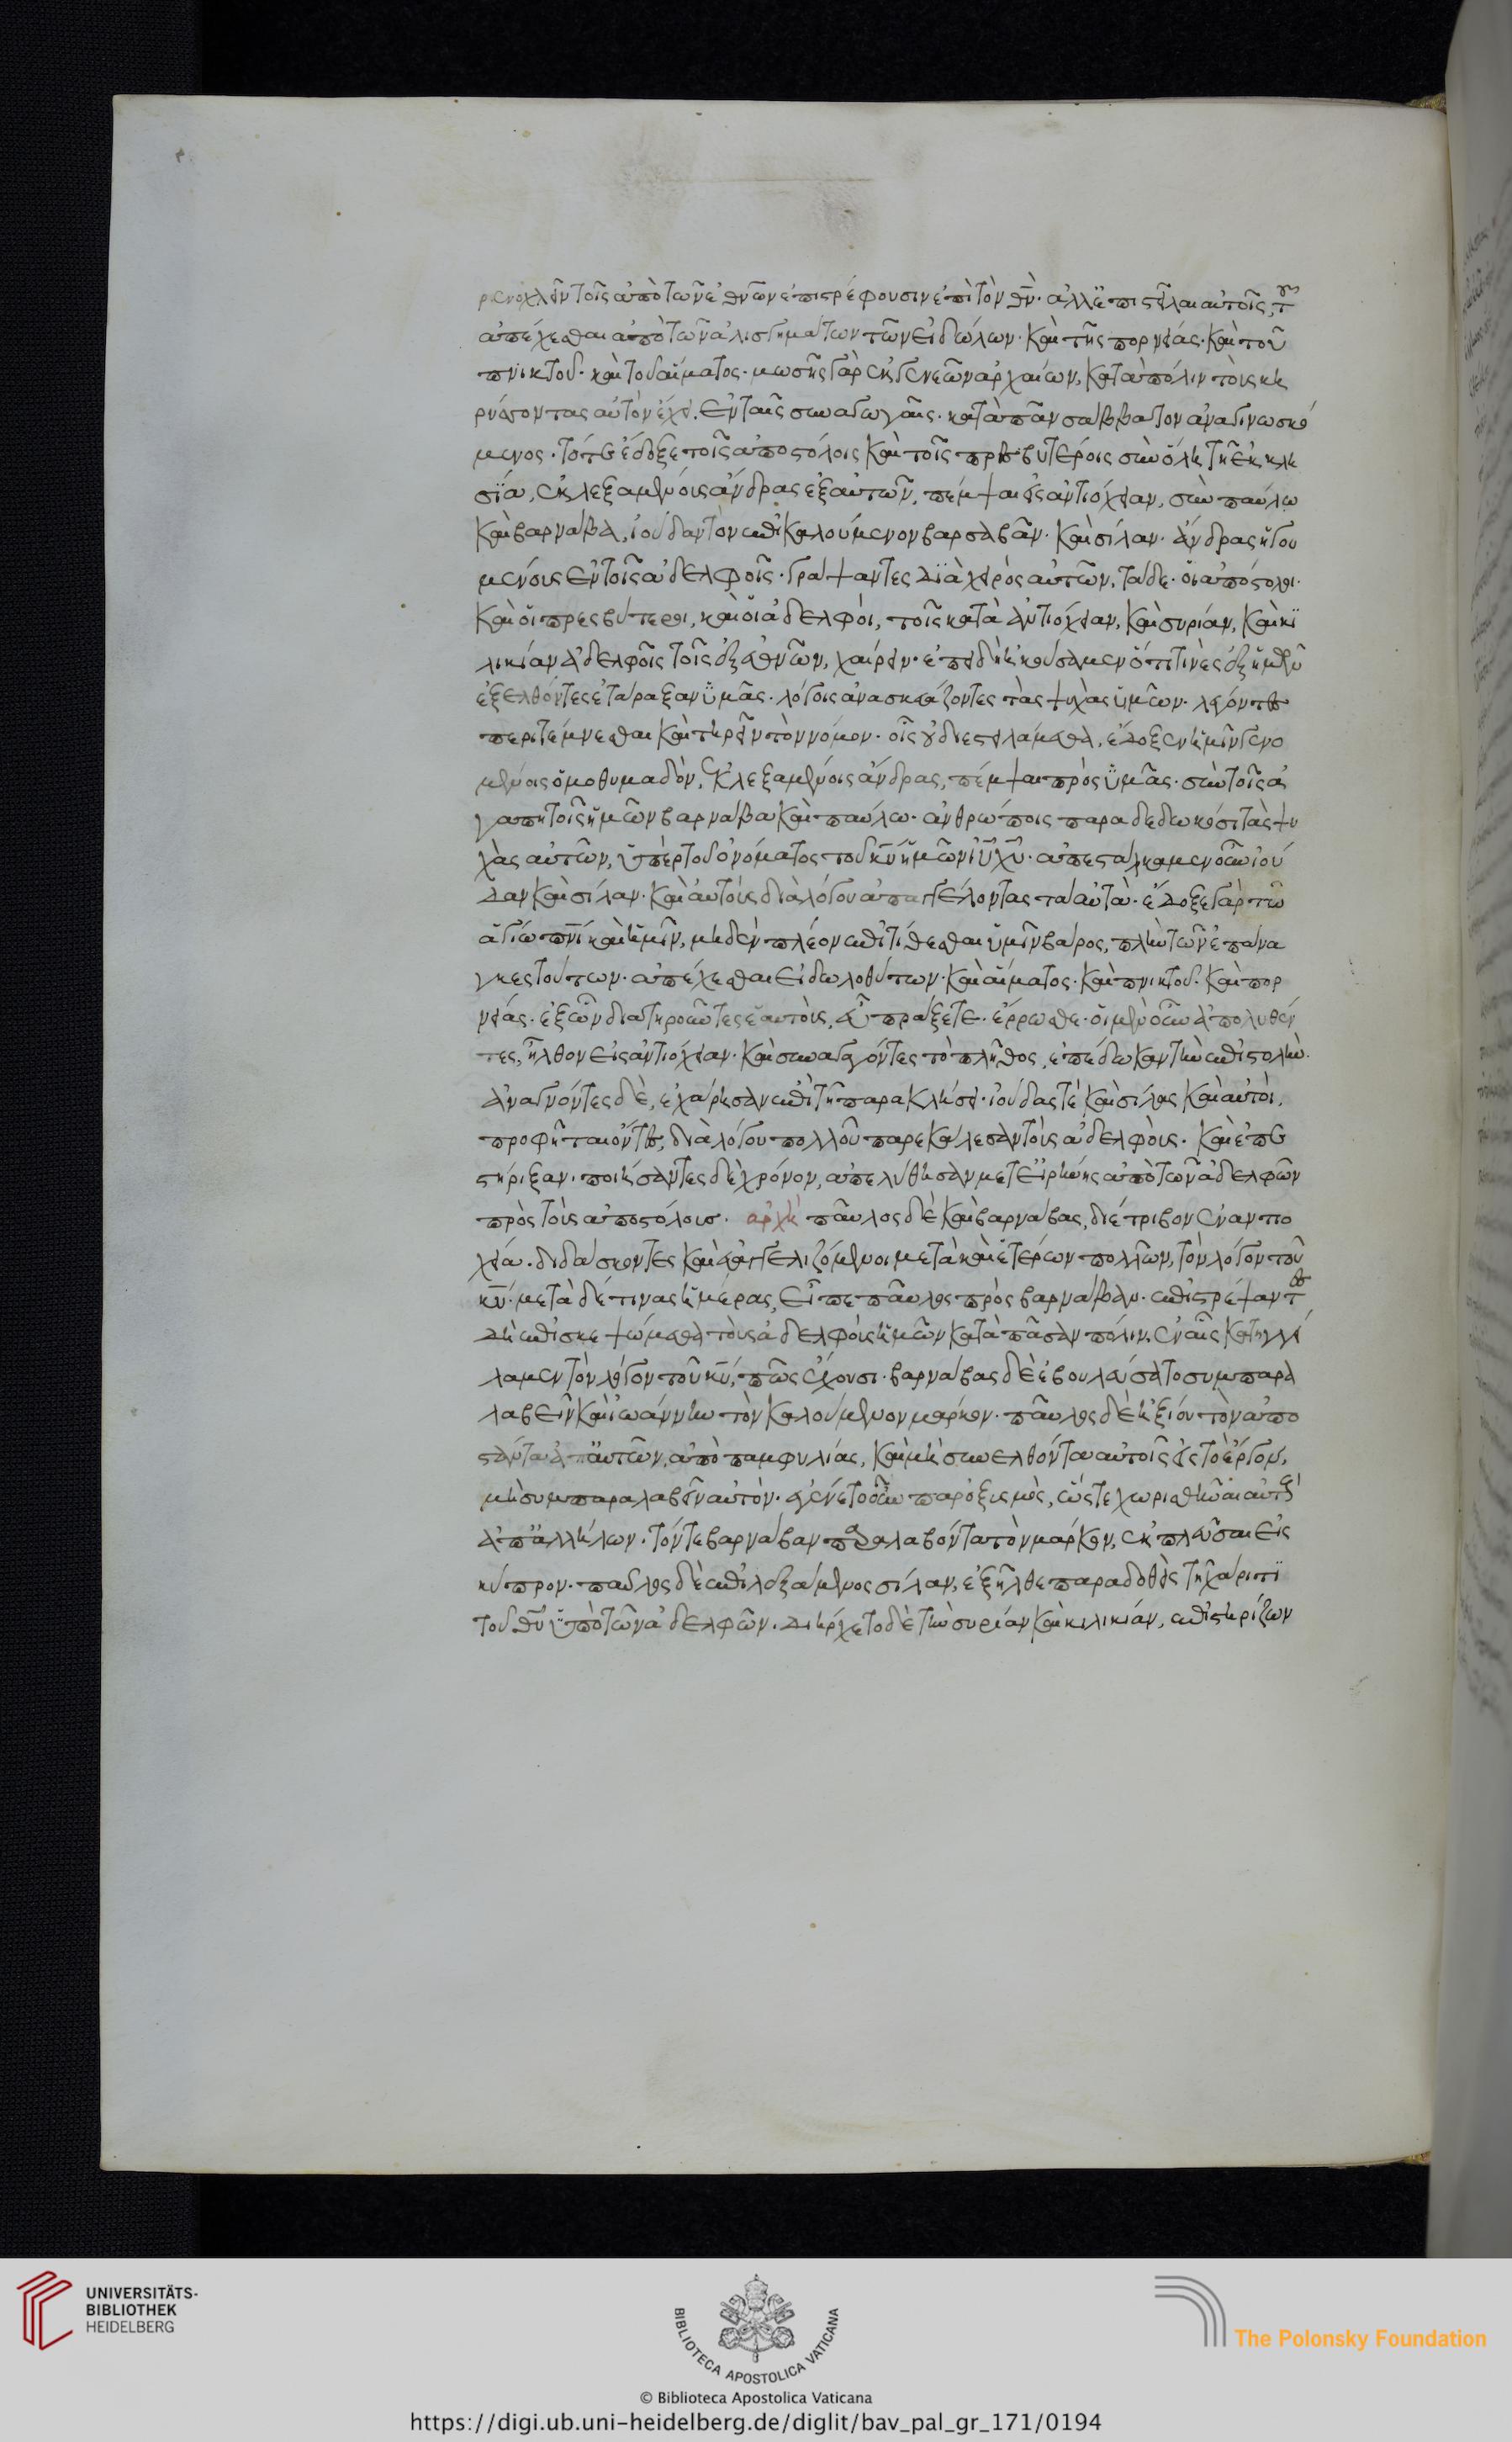 ρενοχλεῖν τοῖς ἀπὸ τῶν ἐθνῶν ἐπιστρέφουσιν ἐπὶ τὸν θν̄· ἀλλ' ἐπιστεῖλαι αὐτοῖς, τοῦ
ἀπέχεσθαι ἀπὸ τῶν ἀλισγημάτων τῶν εἰδώλων· καὶ τῆς πορνείας· καὶ τοῦ
πνικτοῦ· καὶ τοῦ αἵματος· μωσῆς γὰρ ἐκ γενεῶν ἀρχαίων, κατὰ πόλιν τοὺς κη
ρύσσοντας αὐτὸν ἔχει. ἐν ταῖς συναγωγαῖς· κατὰ πᾶν σάββατον ἀναγινωσκό
μενος· τότε ἔδοξε τοῖς ἀποστόλοις καὶ τοῖς πρεσβυτέροις σὺν ὅλη τῆ ἐκκλη
σία, ἐκλεξαμένοις ἄνδρας ἐξ αὐτῶν, πέμψαι εἰς ἀντιόχειαν, σὺν παύλω
καὶ βαρνάβα, ἰούδαν τὸν ἐπικαλούμενον βαρσαβᾶν· καὶ σίλαν· ἄνδρας ἡγου
μένους ἐν τοῖς ἀδελφοῖς· γράψαντες διὰ χειρὸς αὐτῶν, τάδε· οἱ ἀπόστολοι·
καὶ οἱ πρεσβύτεροι, καὶ οἱ ἀδελφοί, τοῖς κατὰ ἀντιόχειαν, καὶ συρίαν, καὶ κι
λικίαν ἀδελφοῖς τοῖς ἐξ ἐθνῶν, χαίρειν· ἐπειδὴ ἠκούσαμεν ὅτι τινὲς ἐξ ἡμῶν
ἐξελθόντες ἐτάραξαν ὑμᾶς· λόγοις ἀνασκευάζοντες τὰς ψυχὰς ὑμῶν· λέγοντες
περιτέμνεσθαι καὶ τηρεῖν τὸν νόμον· οἷς οὐ διεστειλάμεθα, ἔδοξεν ἡμῖν γενο
μένοις ὁμοθυμαδὸν, ἐκλεξαμένοις ἄνδρας, πέμψαι πρὸς ὑμᾶς· σὺν τοῖς ἀ
γαπητοῖς ἡμῶν βαρνάβα καὶ παύλω· ἀνθρώποις παραδεδωκόσι τὰς ψυ
χὰς αὐτῶν, ὑπὲρ τοῦ ὀνόματος τοῦ κῡ ἡμῶν ἰῡ χῡ· ἀπεστάλκαμεν οὖν ἰού
δαν καὶ σίλαν· καὶ αὐτοὺς διὰ λόγου ἀπαγγέλοντας τὰ αὐτά· ἔδοξε γὰρ τῶ
ἁγίω πνῑ καὶ ἡμῖν, μηδὲν πλέον ἐπιτίθεσθαι ὑμῖν βάρος, πλὴν τῶν ἐπάνα
γκες τούτων· ἀπέχεσθαι εἰδωλοθύτων· καὶ αἵματος· καὶ πνικτοῦ· καὶ πορ
νείας· ἐξ ὧν διατηροῦντες ἑαυτοὺς, εὖ πράξετε· ἔρρωσθε· οἱ μὲν οὖν ἀπολυθέν
τες, ἦλθον εἰς ἀντιόχειαν· καὶ συναγαγόντες τὸ πλῆθος, ἐπέδωκαν τὴν ἐπιστολήν·
ἀναγνόντες δὲ, ἐχάρησαν ἐπὶ τῆ παρακλήσει· ἰούδας τέ καὶ σίλας καὶ αὐτοὶ,
προφῆται ὄντες, διὰ λόγου πολλοῦ παρεκάλεσαν τοὺς ἀδελφοὺς· καὶ ἐπε
στήριξαν· ποιήσαντες δὲ χρόνον, ἀπελύθησαν μετ' εἰρήνης ἀπὸ τῶν ἀδελφῶν
πρὸς τοὺς ἀποστόλους· αρχὴ παῦλος δὲ καὶ βαρνάβας, διέτριβον ἐν ἀντιο
χεία· διδάσκοντες καὶ εὐαγγελιζόμενοι μετὰ καὶ ἑτέρων πολλῶν, τὸν λόγον τοῦ
κῡ· μετὰ δέ τινας ἡμέρας, εἶπε παῦλος πρὸς βαρνάβαν· ἐπιστρέψαντες
δὴ ἐπισκεψώμεθα τοὺς ἀδελφοὺς ἡμῶν κατὰ πᾶσαν πόλιν, ἐν αἷς κατηγγεί
λαμεν τὸν λόγον τοῦ κῡ, πῶς ἔχουσι· βαρνάβας δὲ ἐβουλεύσατο συμπαρα
λαβεῖν καὶ ἰωάννην τὸν καλούμενον μάρκον· παῦλος δὲ ἠξίου τὸν ἀπο
στάντα ἀπ' αὐτῶν, ἀπὸ παμφυλίας, καὶ μὴ συνελθόντα αὐτοῖς εἰς τὸ ἔργον,
μὴ συμπαραλαβεῖν αὐτόν· ἐγένετο οὖν παροξισμὸς, ὥστε χωρισθῆναι αὐτοὺς
ἀπ' ἀλλήλων· τόν τε βαρνάβαν παραλαβόντα τὸν μάρκον, ἐκπλεῦσαι εἰς
κύπρον· παῦλος δὲ ἐπιλεξάμενος σίλαν, ἐξῆλθε παραδοθεὶς τῆ χάριτι
τοῦ θῡ ὑπὸ τῶν ἀδελφῶν· διήρχετο δὲ τὴν συρίαν καὶ κιλικίαν, ἐπιστηρίζων
UNIVERSITÄTS-
BIBLIOTHEK
HEIDELBERG
BIBLIOTECA APOSTOLICA VATICANA
The Polonsky Foundation
© Biblioteca Apostolica Vaticana
https://digi.ub.uni-heidelberg.de/diglit/bav_pal_gr_171/0194